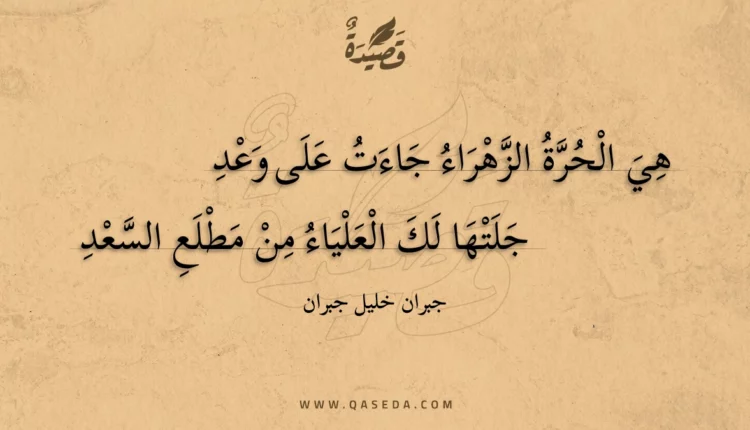 قَصِيدَةٌ
هِيَ الْحُرَّةُ الزَّهْرَاءُ جَاءَتُ عَلَى وَعْدِ
جَلَتْهَا لَكَ الْعَلْيَاءُ مِنْ مَطْلَعِ السَّعْدِ
جبران خليل جبران
WWW.QASEDA.COM